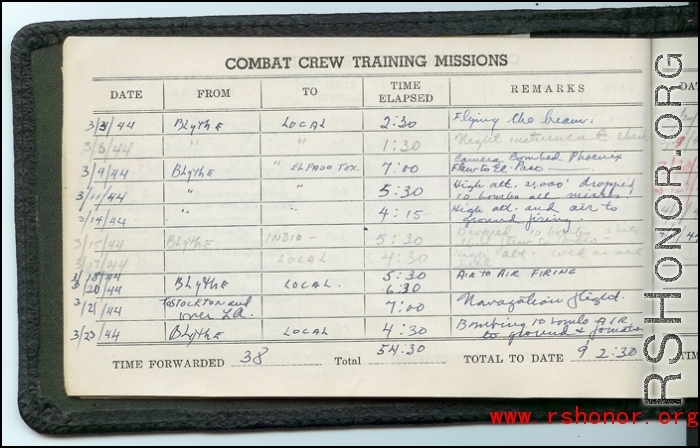 COMBAT CREW TRAINING MISSIONS
DATE FROM TO TIME ELAPSED REMARKS
3/3/44 BLYTHE LOCAL 2:30 Flying the beam.
3/8/44 " " 1:30 Night instrument & check
3/9/44 BLYTHE " EL PASO TEX. 7:00 Camera Bombed Phoenix
Flew to El Paso
3/11/44 " " 5:30 High alt. dropped
10 bombs all
3/14/44 " " 4:15 High alt. and air to
ground firing
3/15/44 BLYTHE INDIO - 5:30 Dropped 10 bombs
3/17/44 LOCAL 4:30
3/18/44 5:30 AIR TO AIR FIRING
3/20/44 BLYTHE LOCAL. 6:30
3/21/44 TO STOCKTON and over LA. 7:00 Navagation flight.
3/23/44 BLYTHE LOCAL 4:30 Bombing 10 bombs AIR
to ground &
TIME FORWARDED 38 Total 54:30 TOTAL TO DATE 92:30
RSHONOR.ORG
www.rshonor.org